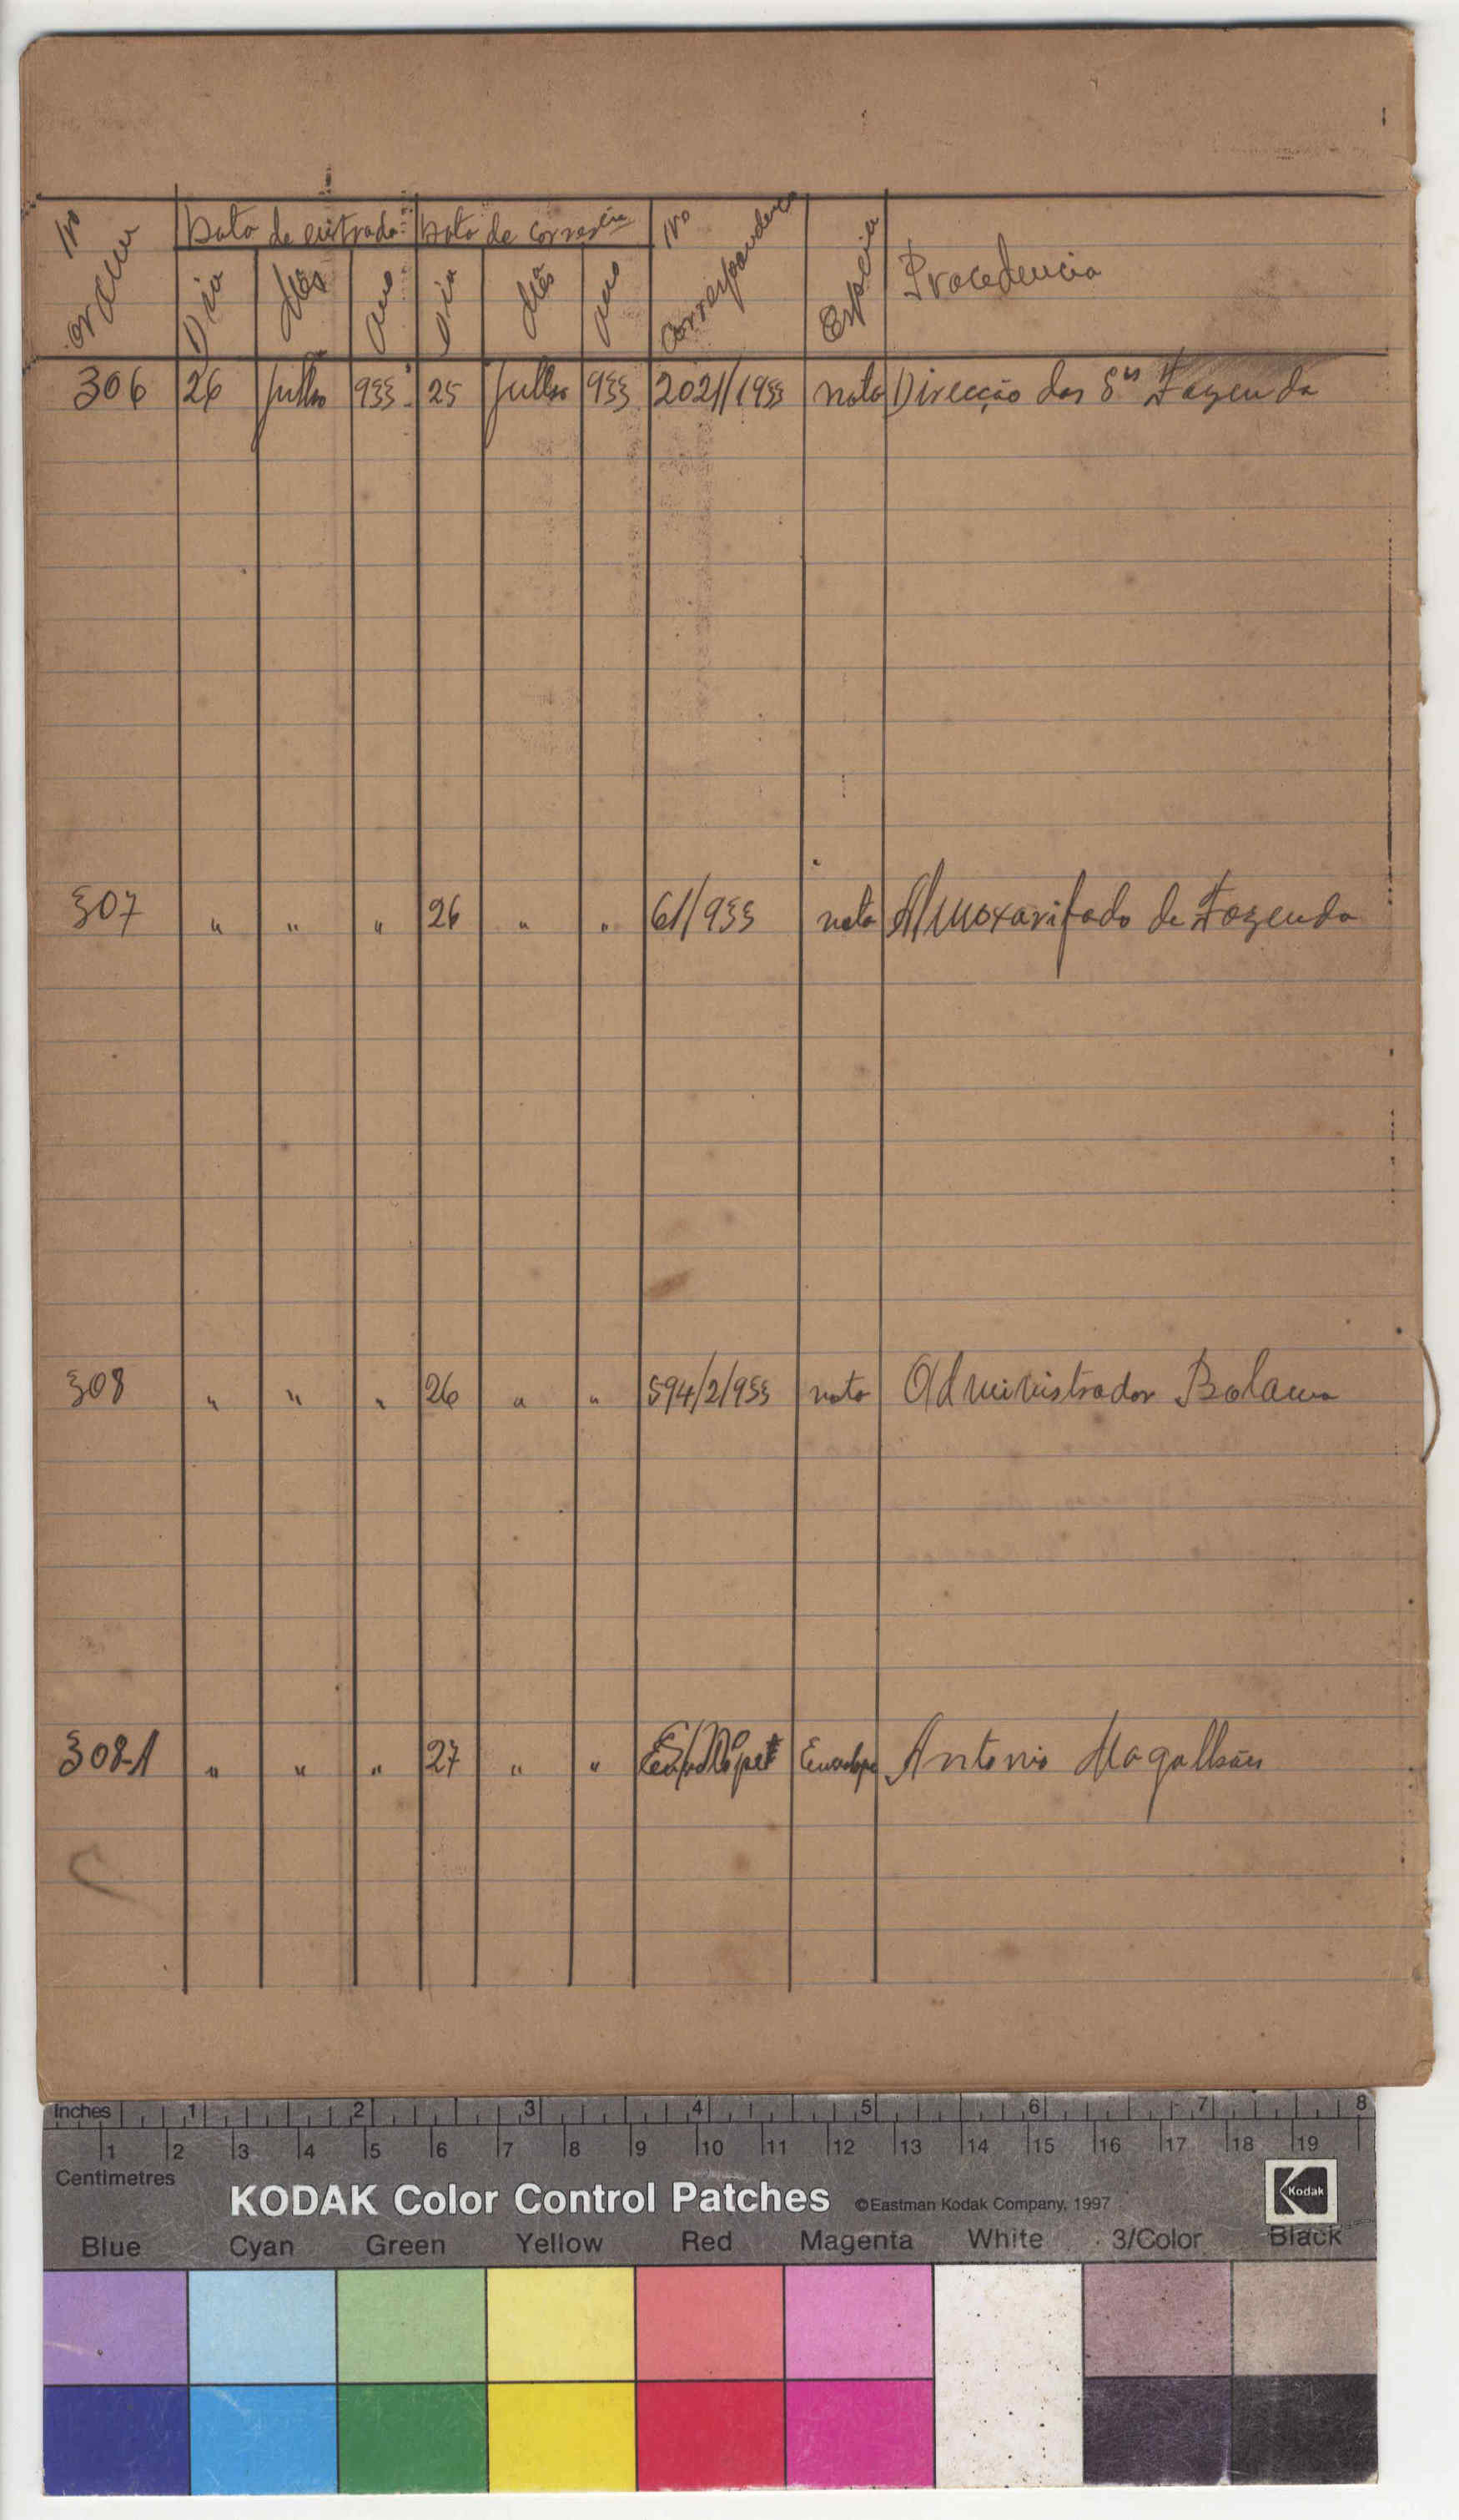 Nº ordem Data de entrada Data de corres cia Nº Correspondencia Especie Procedencia
Dia Mês Ano Dia Mês Ano
306 26 Julho 933 25 Julho 933 2021/1933 nota Direcção dos Sos Fazenda
307 " " " 26 " " 61/933 nota Almoxarifado de Fazenda
308 " " " 26 " " 594/2/933 nota Administrador Bolama
308-A " " " 27 " " Envelope Antonio Magalhães
Inches 1 2 3 4 5 6 7 8
1 2 3 4 5 6 7 8 9 10 11 12 13 14 15 16 17 18 19
Centimetres
KODAK Color Control Patches ©Eastman Kodak Company, 1997 Kodak
Blue Cyan Green Yellow Red Magenta White 3/Color Black